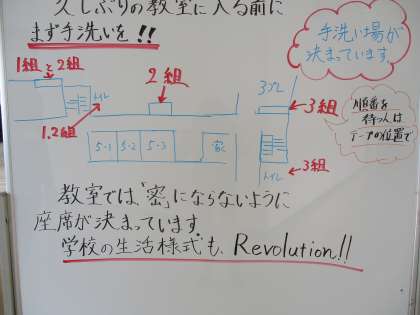 久しぶりの教室に入る前に
まず手洗いを!!
手洗い場が
決まっています。
1組と2組
2組
3組
トイレ
1.2組
5-1
5-2
5-3
順番を
待つ人は
テープの位置で
トイレ
3組
教室では、'密'にならないように
座席が決まっています。
学校の生活様式も、Revolution!!